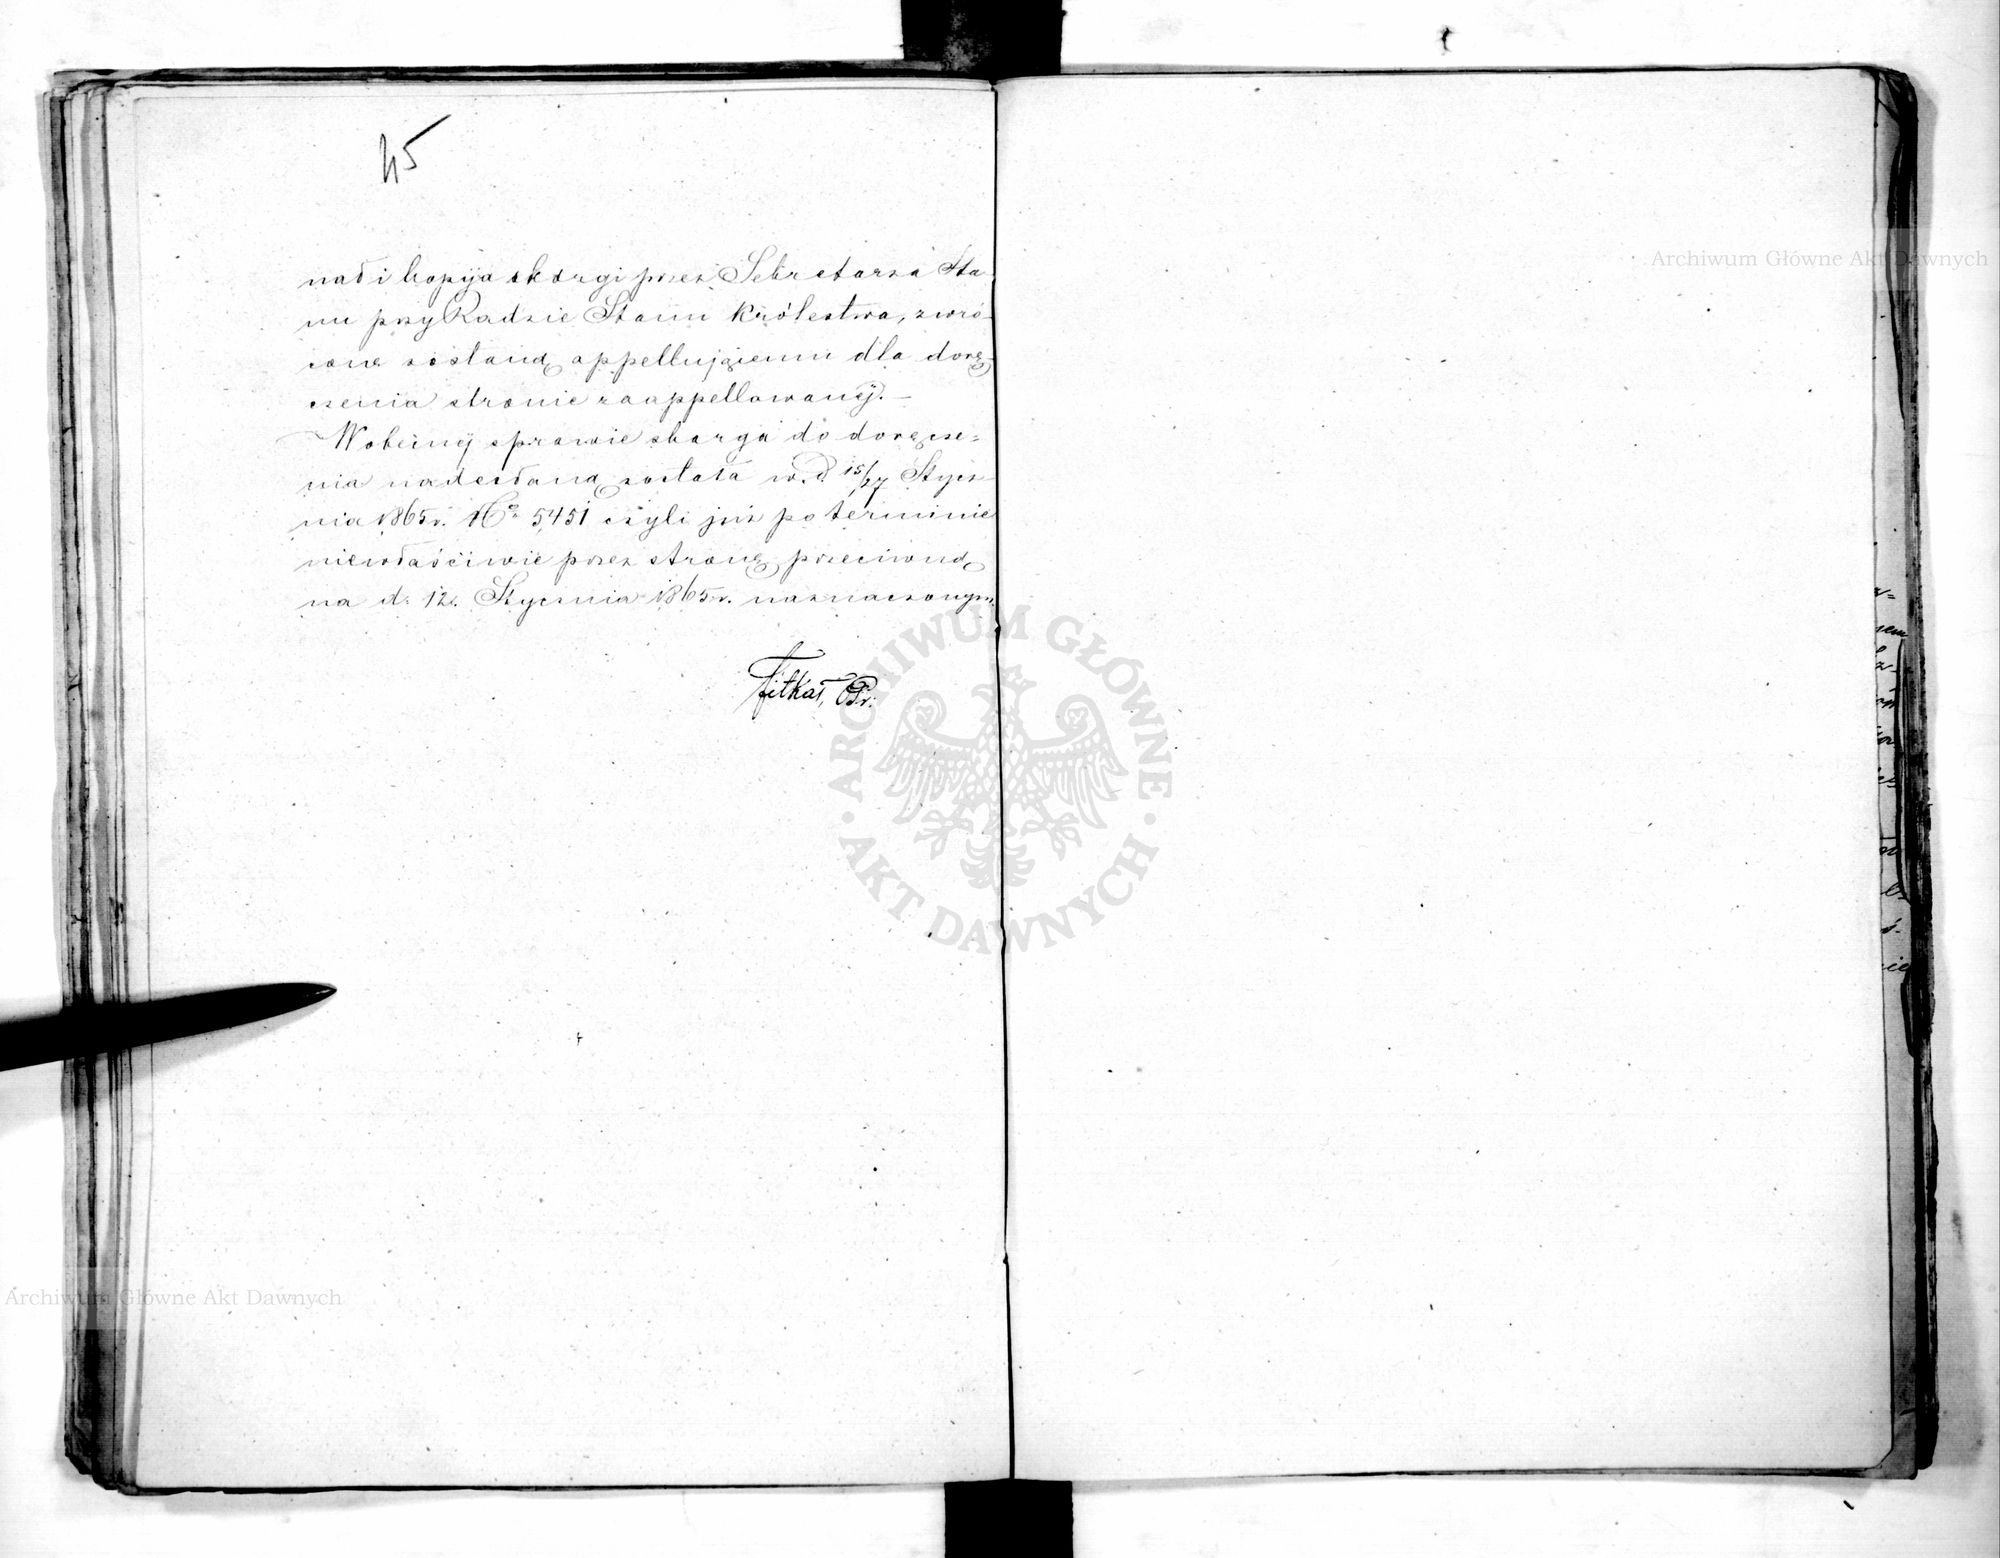 45
nał i kopija skargi przez Sekretarza Sta-
nu przy Radzie Stanu Królestwa, zwró-
cone zostaną appellującemu dla dorę-
czenia stronie zaappellowanéj. —
W obecnéj sprawie skarga do doręcze=
nia nadesłaną została w. d 15/27 Stycz-
nia 1865 r. No 5451 czyli już po terminie
niewłaściwie przez stronę przeciwną
na d. 12. Stycznia 1865 r. naznaczonym.
Archiwum Główne Akt Dawnych
ARCHIWUM GŁÓWNE
· AKT DAWNYCH ·
Archiwum Główne Akt Dawnych